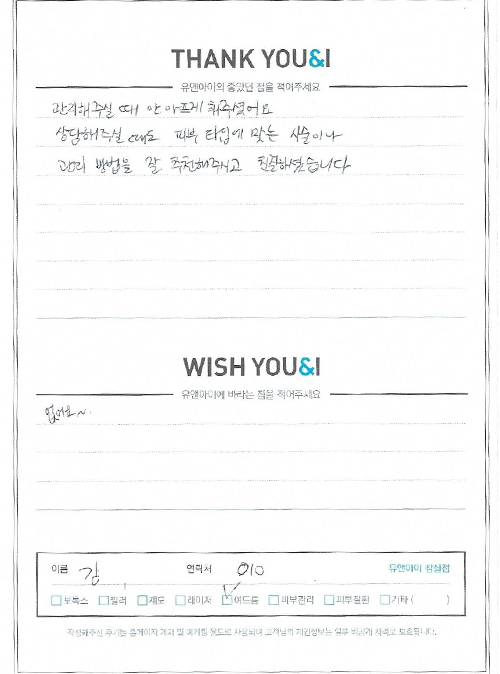 THANK YOU&I
유앤아이의 좋았던 점을 적어주세요
관리해주실 때 안 아프게 해주셨어요
상담해주실 때도 피부 타입에 맞는 시술이나
관리 방법을 잘 추천해주시고 친절하셨습니다
WISH YOU&I
유앤아이에 바라는 점을 적어주세요
없어요~
이름 김 연락처 010 유앤아이 잠실점
보톡스 필러 제모 레이저 여드름 피부관리 피부질환 기타 ( )
작성해주신 후기는 홈페이지 게재 및 마케팅 용도로 사용되며 고객님의 개인정보는 일부 비공개 처리로 보호됩니다.